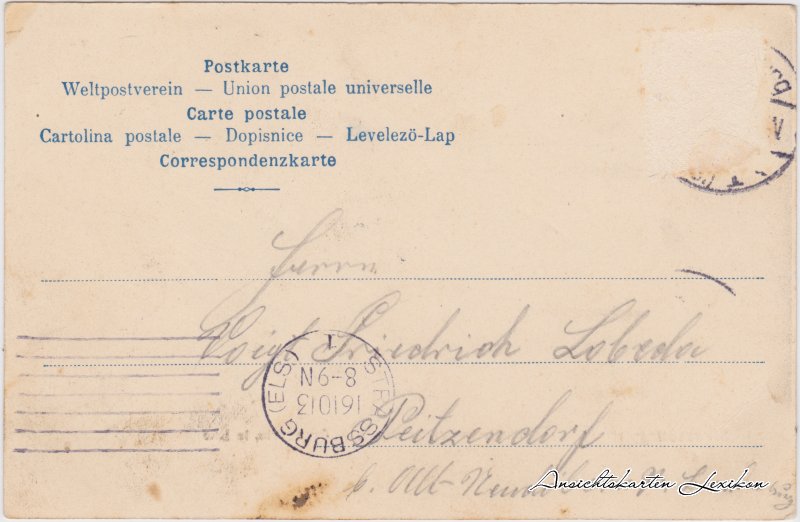 Postkarte
Weltpostverein — Union postale universelle
Carte postale
Cartolina postale — Dopisnice — Levelezö-Lap
Correspondenzkarte
Herrn
Voigt Friedrich Lobeda
Peitzendorf
STRASSBURG (ELS) 1
161013
N6-8
Ansichtskarten Lexikon